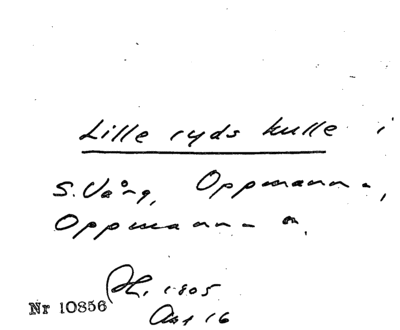 Lille ryds kulle i
S. Vång, Oppmanna,
Oppmanna
1805
Nr 10856
Akt 16